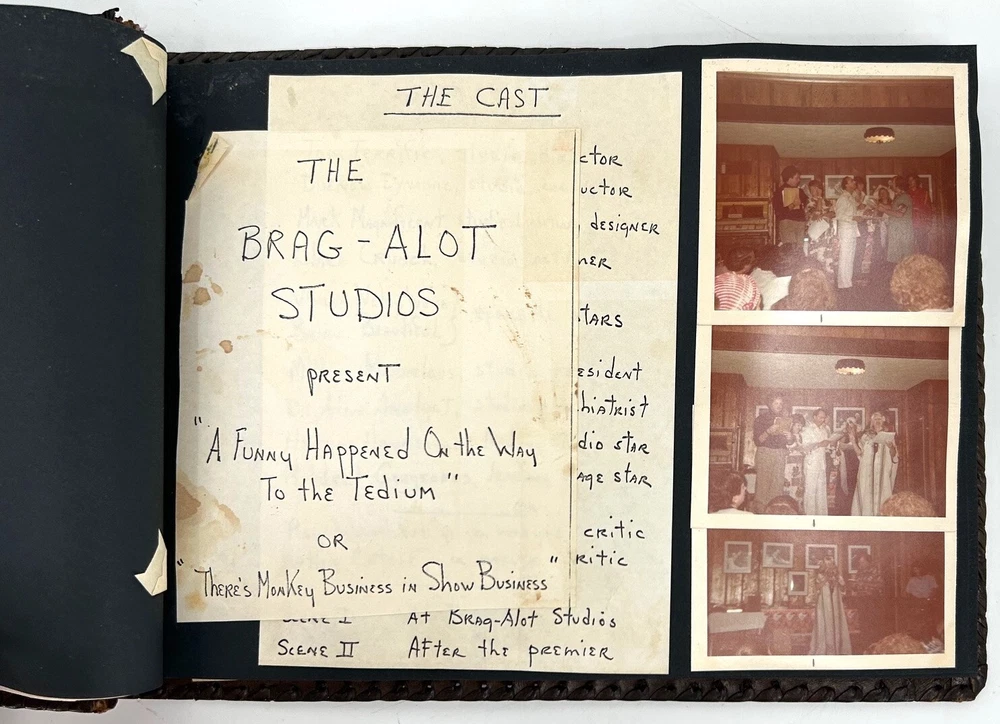 THE CAST
THE
BRAG-ALOT
STUDIOS
present
"A Funny Happened On the Way
To the Tedium"
OR
"There's Monkey Business in Show Business"
ctor
uctor
designer
ner
tars
esident
hiatrist
dio star
age star
critic
ritic
Scene I At Brag-Alot Studios
Scene II After the premier